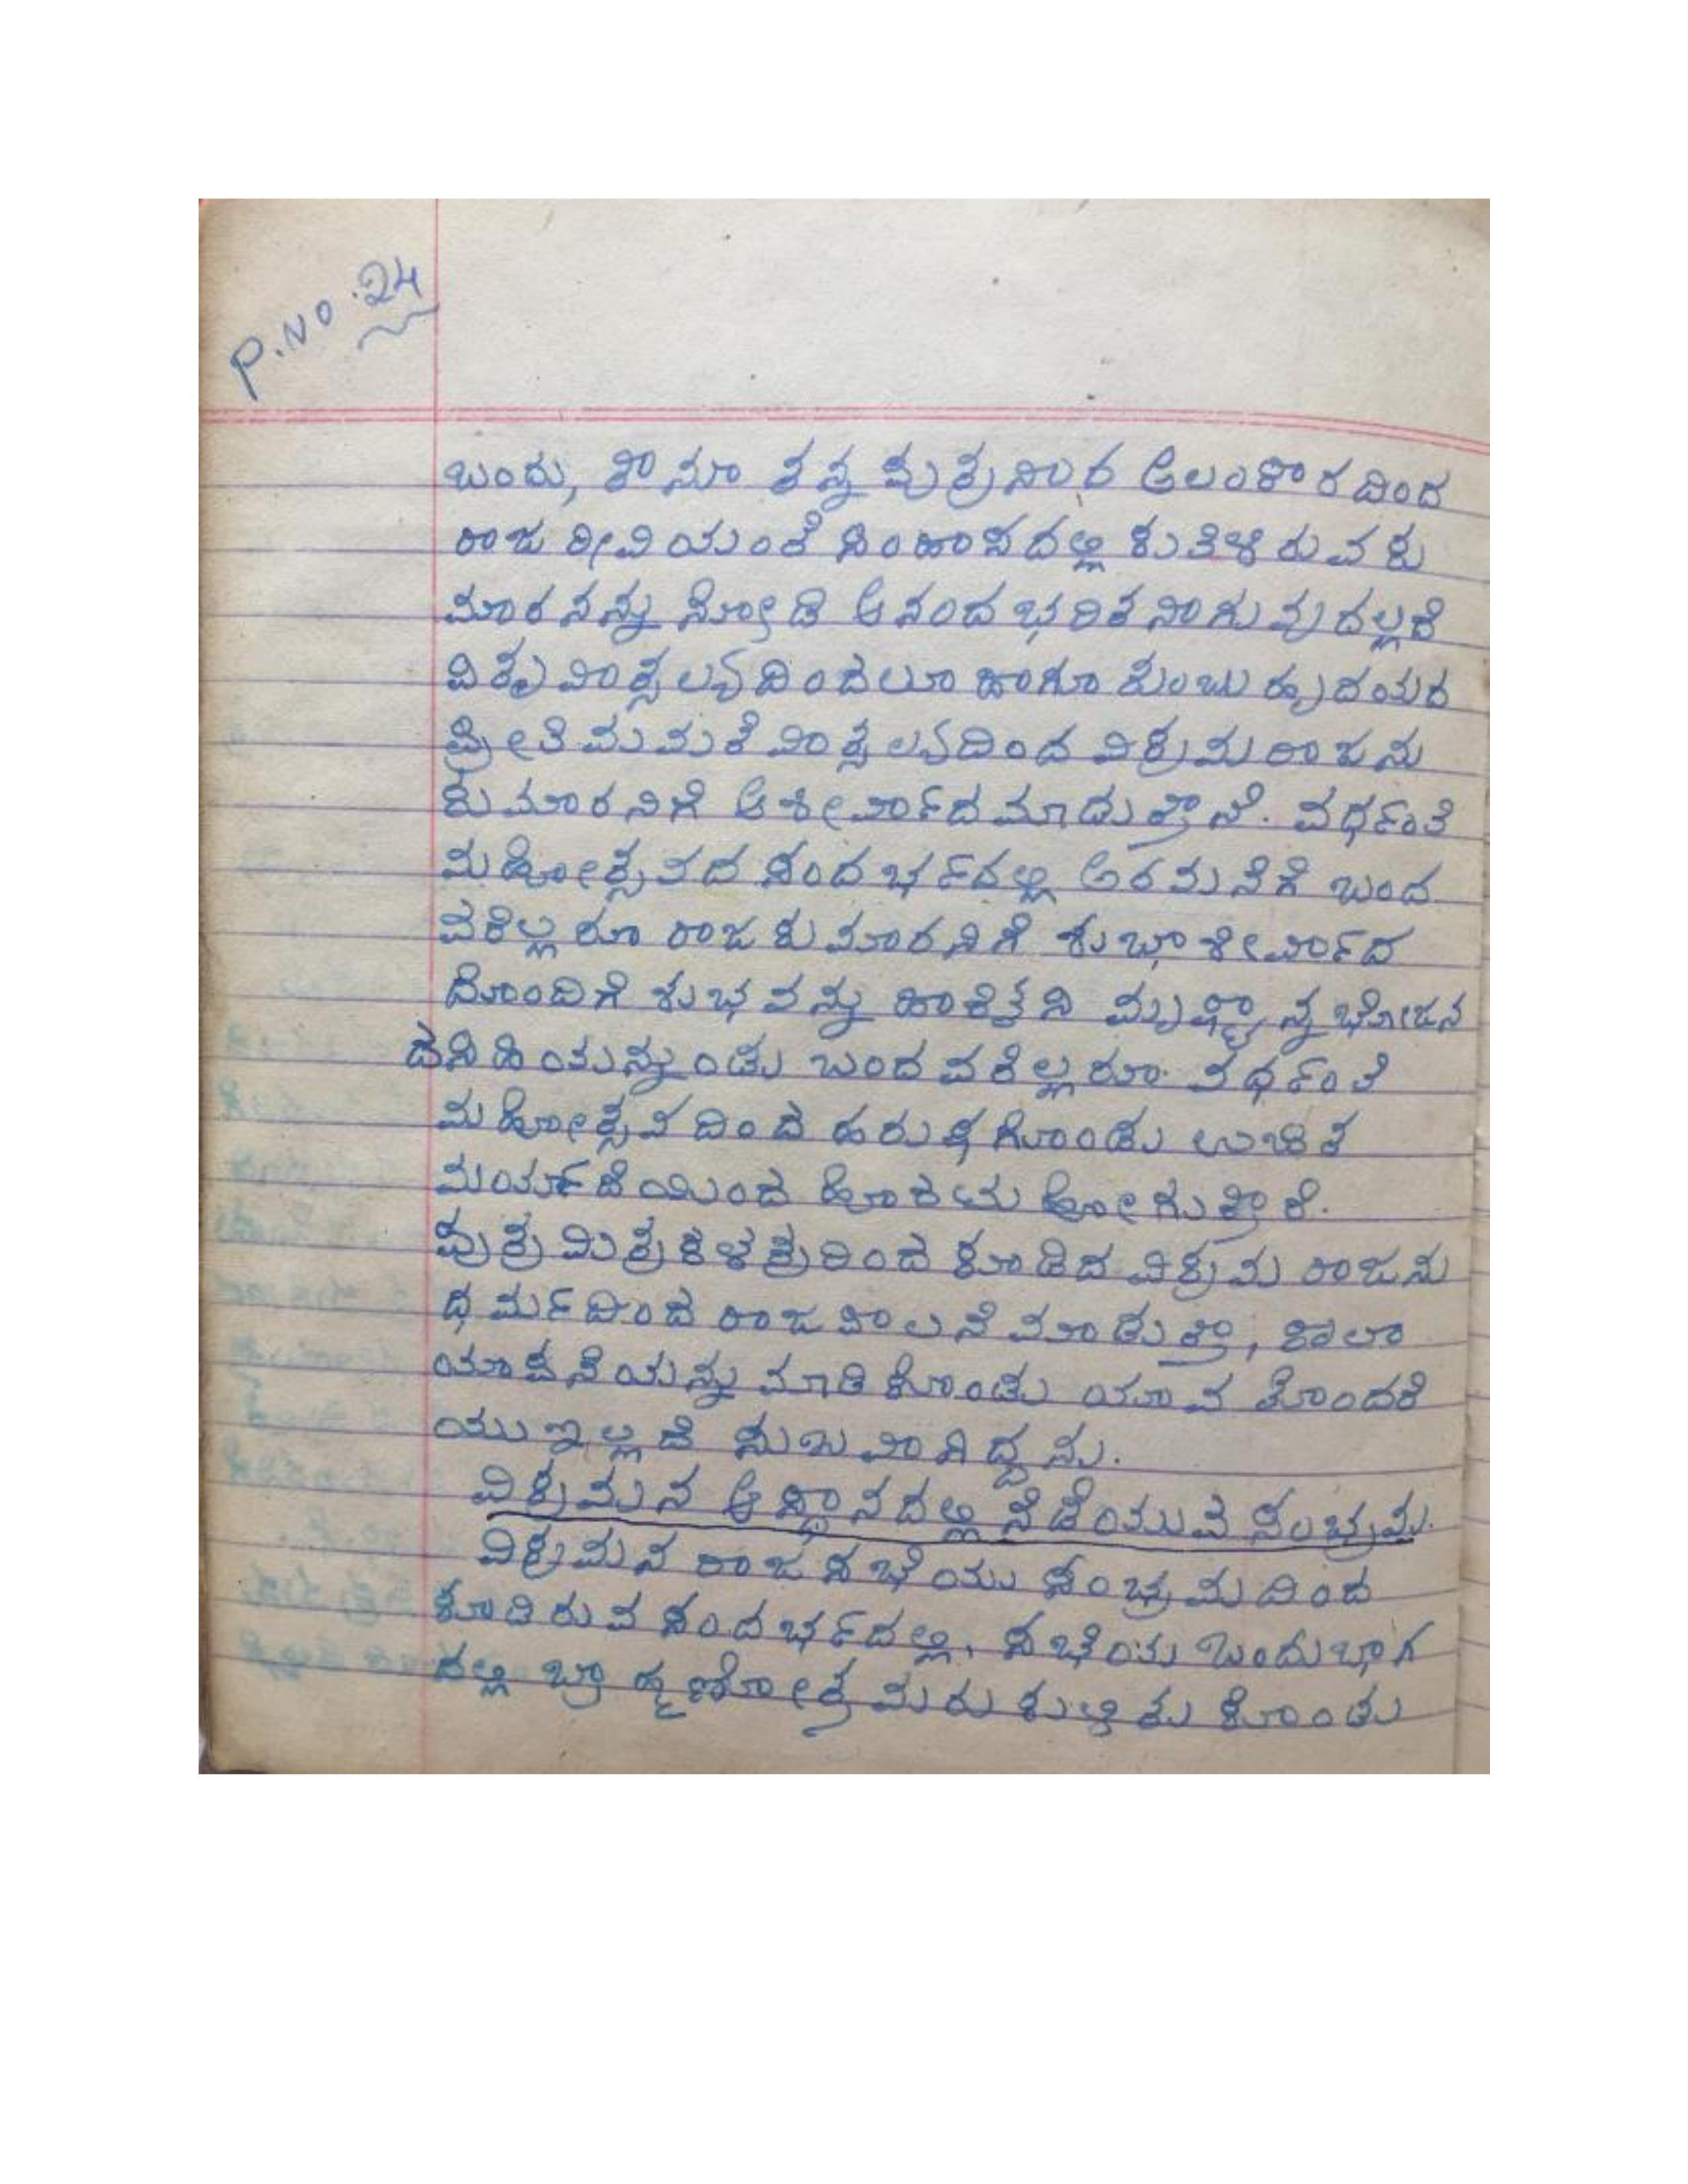 P.NO.24
ಬಂದು, ತಾನೂ ತನ್ನ ಪುತ್ರನಾದ ಅಲಂಕಾರದಿಂದ
ರಾಜ ಠೀವಿಯಂತೆ ಸಿಂಹಾಸದಲ್ಲಿ ಕುತಿಳಿರುವ ಕು
ಮಾರನನ್ನು ನೋಡಿ ಆನಂದ ಭರಿತನಾಗುವುದಲ್ಲದೆ
ಪಿತೃವಾತ್ಸಲ್ಯದಿಂದಲೂ ಹಾಗೂ ತುಂಬು ಹೃದಯದ
ಪ್ರೀತಿ ಮಮತೆ ವಾತ್ಸಲ್ಯದಿಂದ ವಿಕ್ರಮ ರಾಜನು
ಕುಮಾರನಿಗೆ ಆಶೀರ್ವಾದ ಮಾಡುತ್ತಾನೆ. ವರ್ಧಂತಿ
ಮಹೋತ್ಸವದ ಸಂದರ್ಭದಲ್ಲಿ ಅರಮನೆಗೆ ಬಂದ
ವರೆಲ್ಲರೂ ರಾಜ ಕುಮಾರನಿಗೆ ಶುಭಾಶೀರ್ವಾದ
ದೊಂದಿಗೆ ಶುಭವನ್ನು ಹಾರೈಸಿ ಮೃಷ್ಟಾನ್ನ ಭೋಜನ
ದ ಸಿಹಿಯನ್ನುಂಡು ಬಂದವರೆಲ್ಲರೂ ವರ್ಧಂತಿ
ಮಹೋತ್ಸವದಿಂದ ಹರುಷಗೊಂಡು ಉಚಿತ
ಮರ್ಯಾದೆಯಿಂದ ಹೊರಟು ಹೋಗುತ್ತಾರೆ.
ಪುತ್ರ ಮಿತ್ರ ಕಳತ್ರರಿಂದ ಕೂಡಿದ ವಿಕ್ರಮ ರಾಜನು
ಧರ್ಮದಿಂದ ರಾಜಪಾಲನೆ ಮಾಡುತ್ತಾ, ಕಾಲಾ
ಯಾಪನೆಯನ್ನು ಮಾಡಿಕೊಂಡು ಯಾವ ತೊಂದರೆ
ಯು ಇಲ್ಲದೆ ಸುಖವಾಗಿದ್ದನು.
ವಿಕ್ರಮನ ಆಸ್ಥಾನದಲ್ಲಿ ನೆಡೆಯುವ ಸಂಭ್ರಮ.
ವಿಕ್ರಮನ ರಾಜಸಭೆಯು ಸಂಭ್ರಮದಿಂದ
ಕೂಡಿರುವ ಸಂದರ್ಭದಲ್ಲಿ, ಸಭೆಯ ಒಂದುಭಾಗ
ದಲ್ಲಿ ಬ್ರಾಹ್ಮಣೋತ್ತಮರು ಕುಳಿತು ಕೊಂಡು